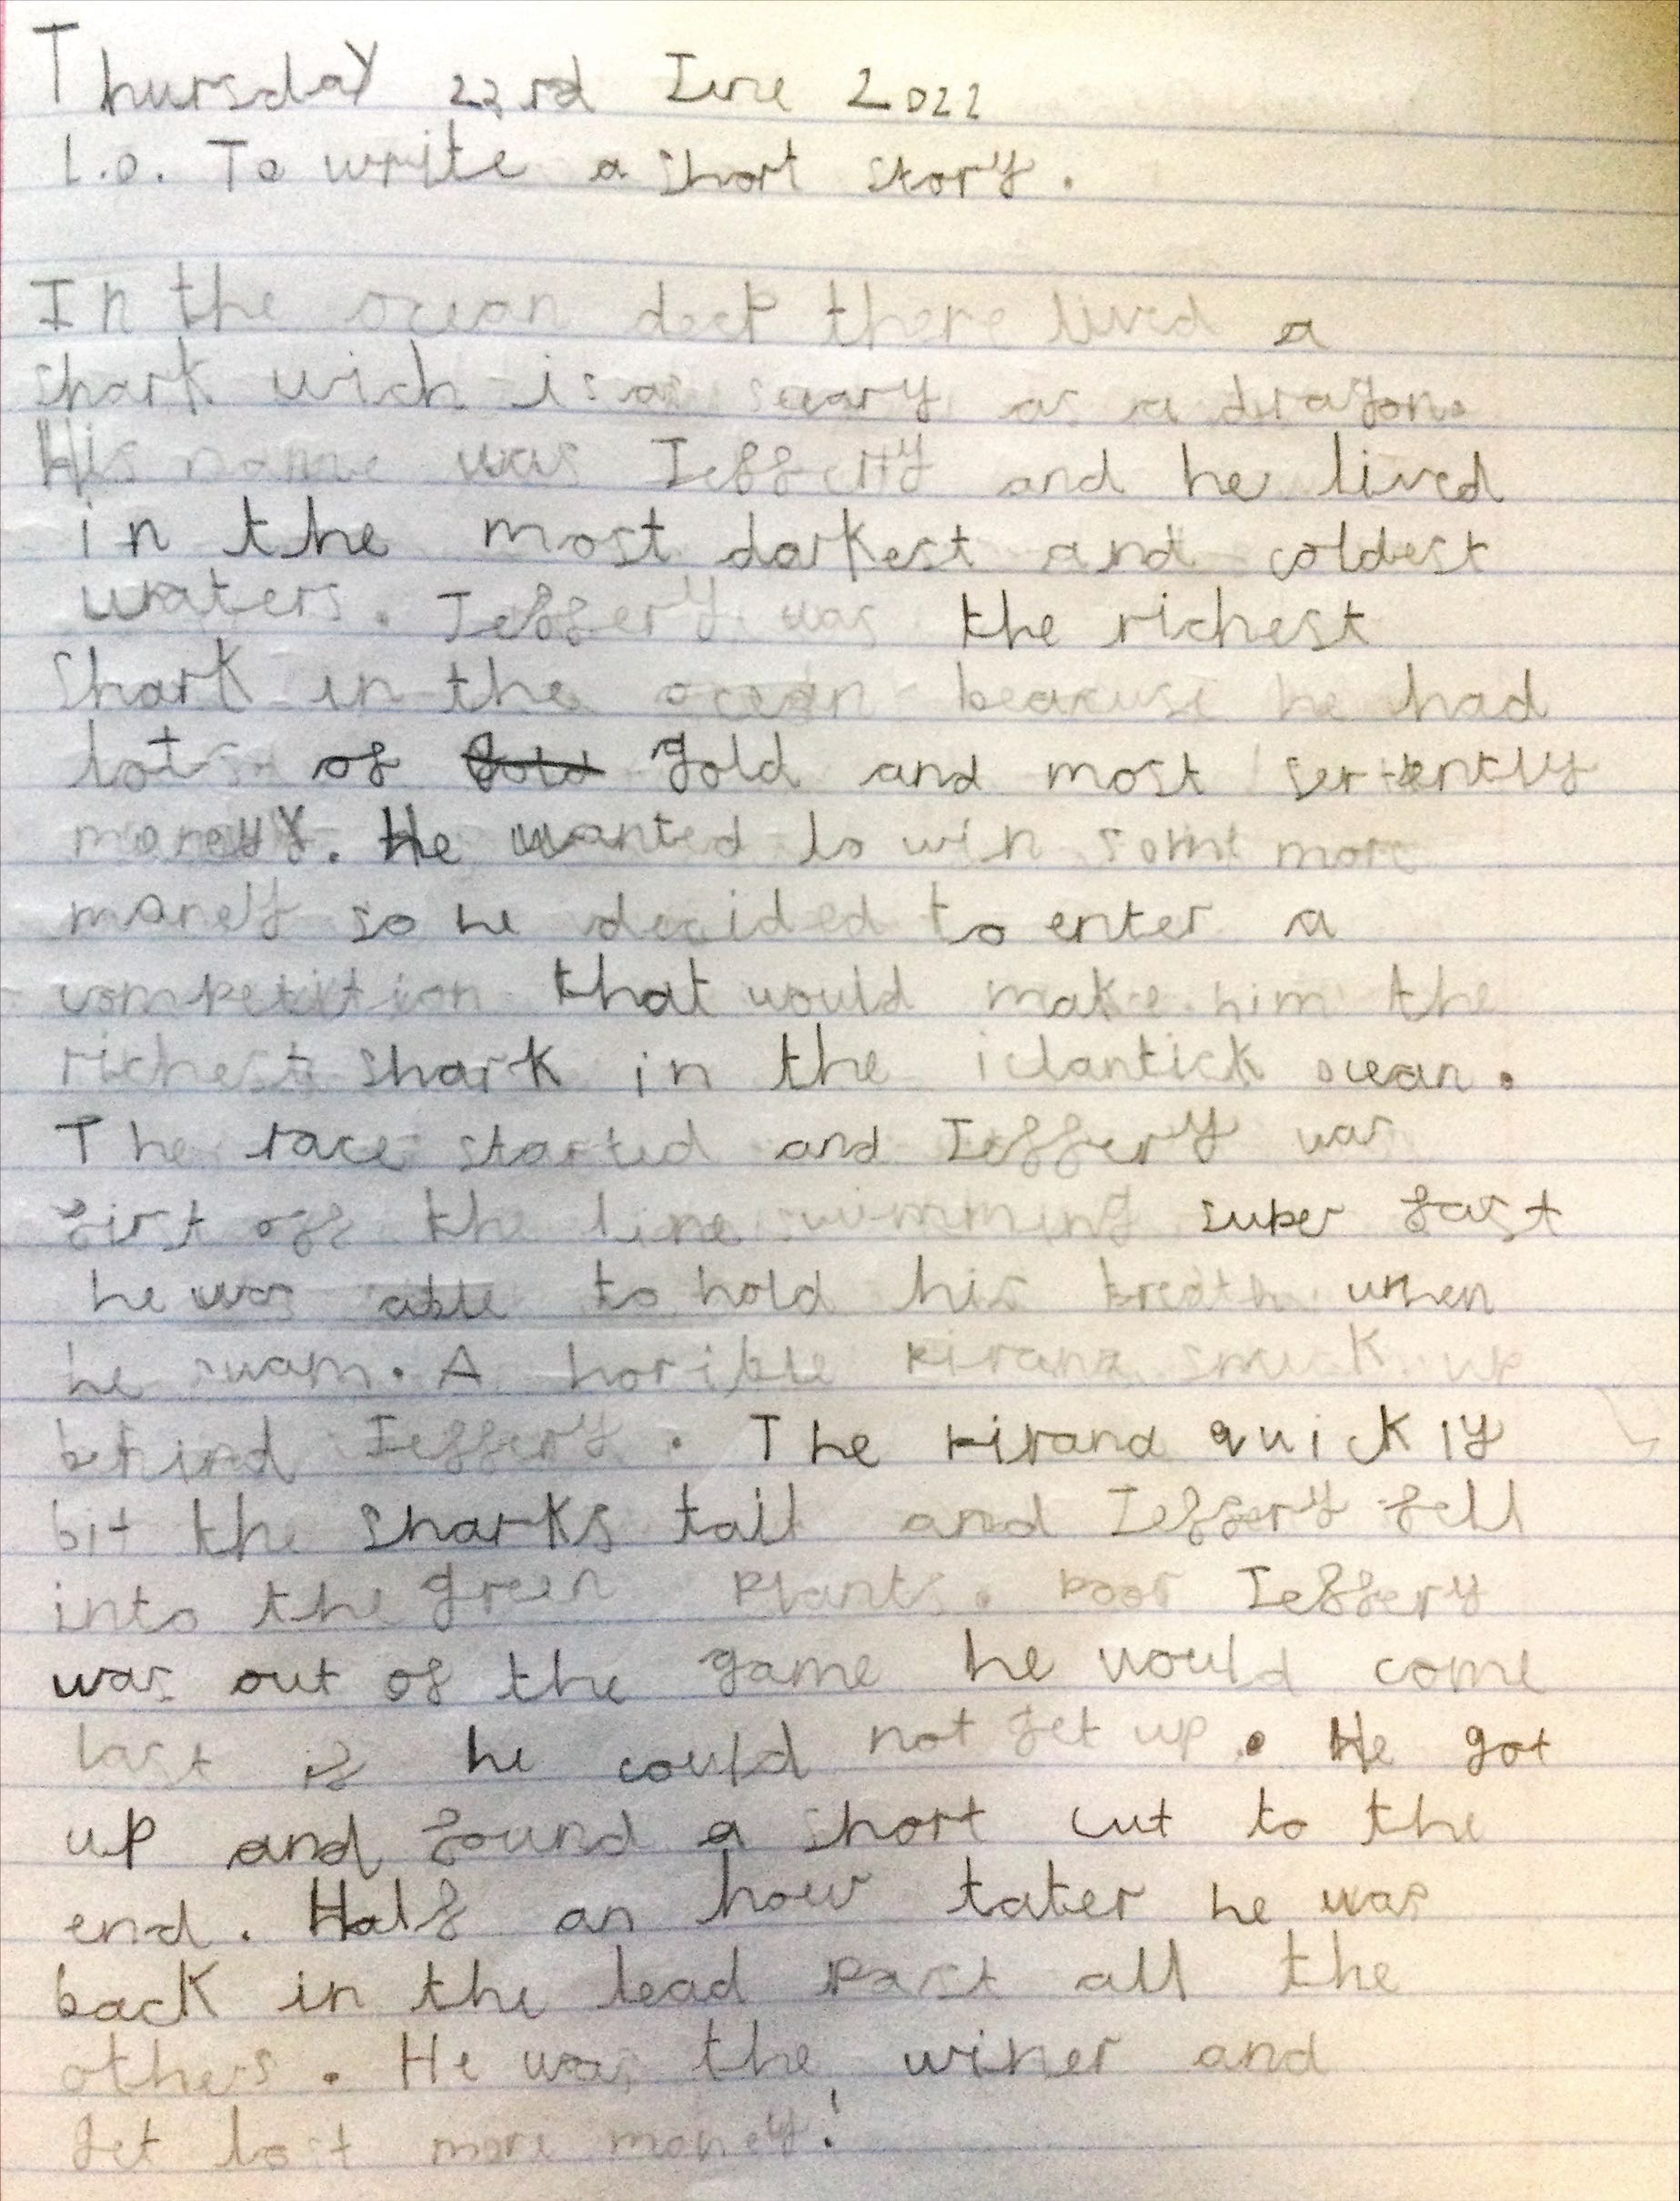 Thursday 23rd June 2022
L.O. To write a short story.
In the ocean deep there lived a
shark wich is as scary as a dragon.
His name was Jeffery and he lived
in the most darkest and coldest
waters. Jeffery was the richest
shark in the ocean beacuse he had
lots of gold and most sertently
money. He wanted to win some more
money so he decided to enter a
competition that would make him the
richest shark in the iclantick ocean.
The race started and Jeffery was
first off the line swimming super fast
he was able to hold his breath when
he swam. A horible pirana snuck up
behind Jeffery. The pirana quickly
bit the sharks tail and Jeffery fell
into the green plants. Poor Jeffery
was out of the game he would come
last if he could not get up. He got
up and found a short cut to the
end. Half an hour later he was
back in the lead past all the
others. He was the winer and
get lost more money!